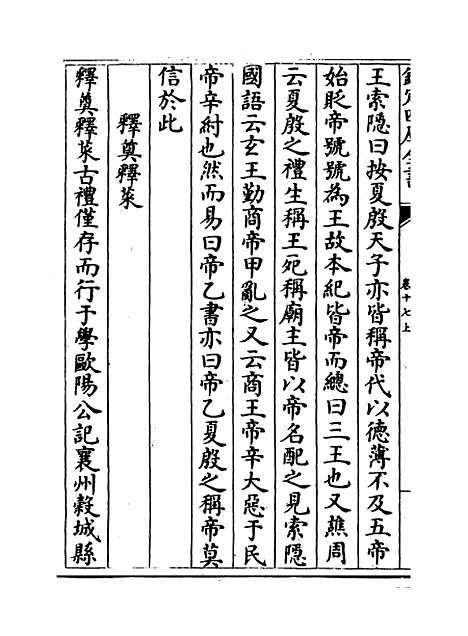 欽定四庫全書
卷十七上
王索隐曰按夏殷天子亦皆稱帝代以德薄不及五帝
始貶帝號號為王故本紀皆帝而總曰三王也又蕉周
云夏殷之禮生稱王死稱廟主皆以帝名配之見索隱
國語云玄王勤商帝甲亂之又云商王帝辛大惡于民
帝辛紂也然而易曰帝乙書亦曰帝乙夏殷之稱帝莫
信於此
釋奠釋菜
釋奠釋菜古禮僅存而行于學歐陽公記襄州穀城縣